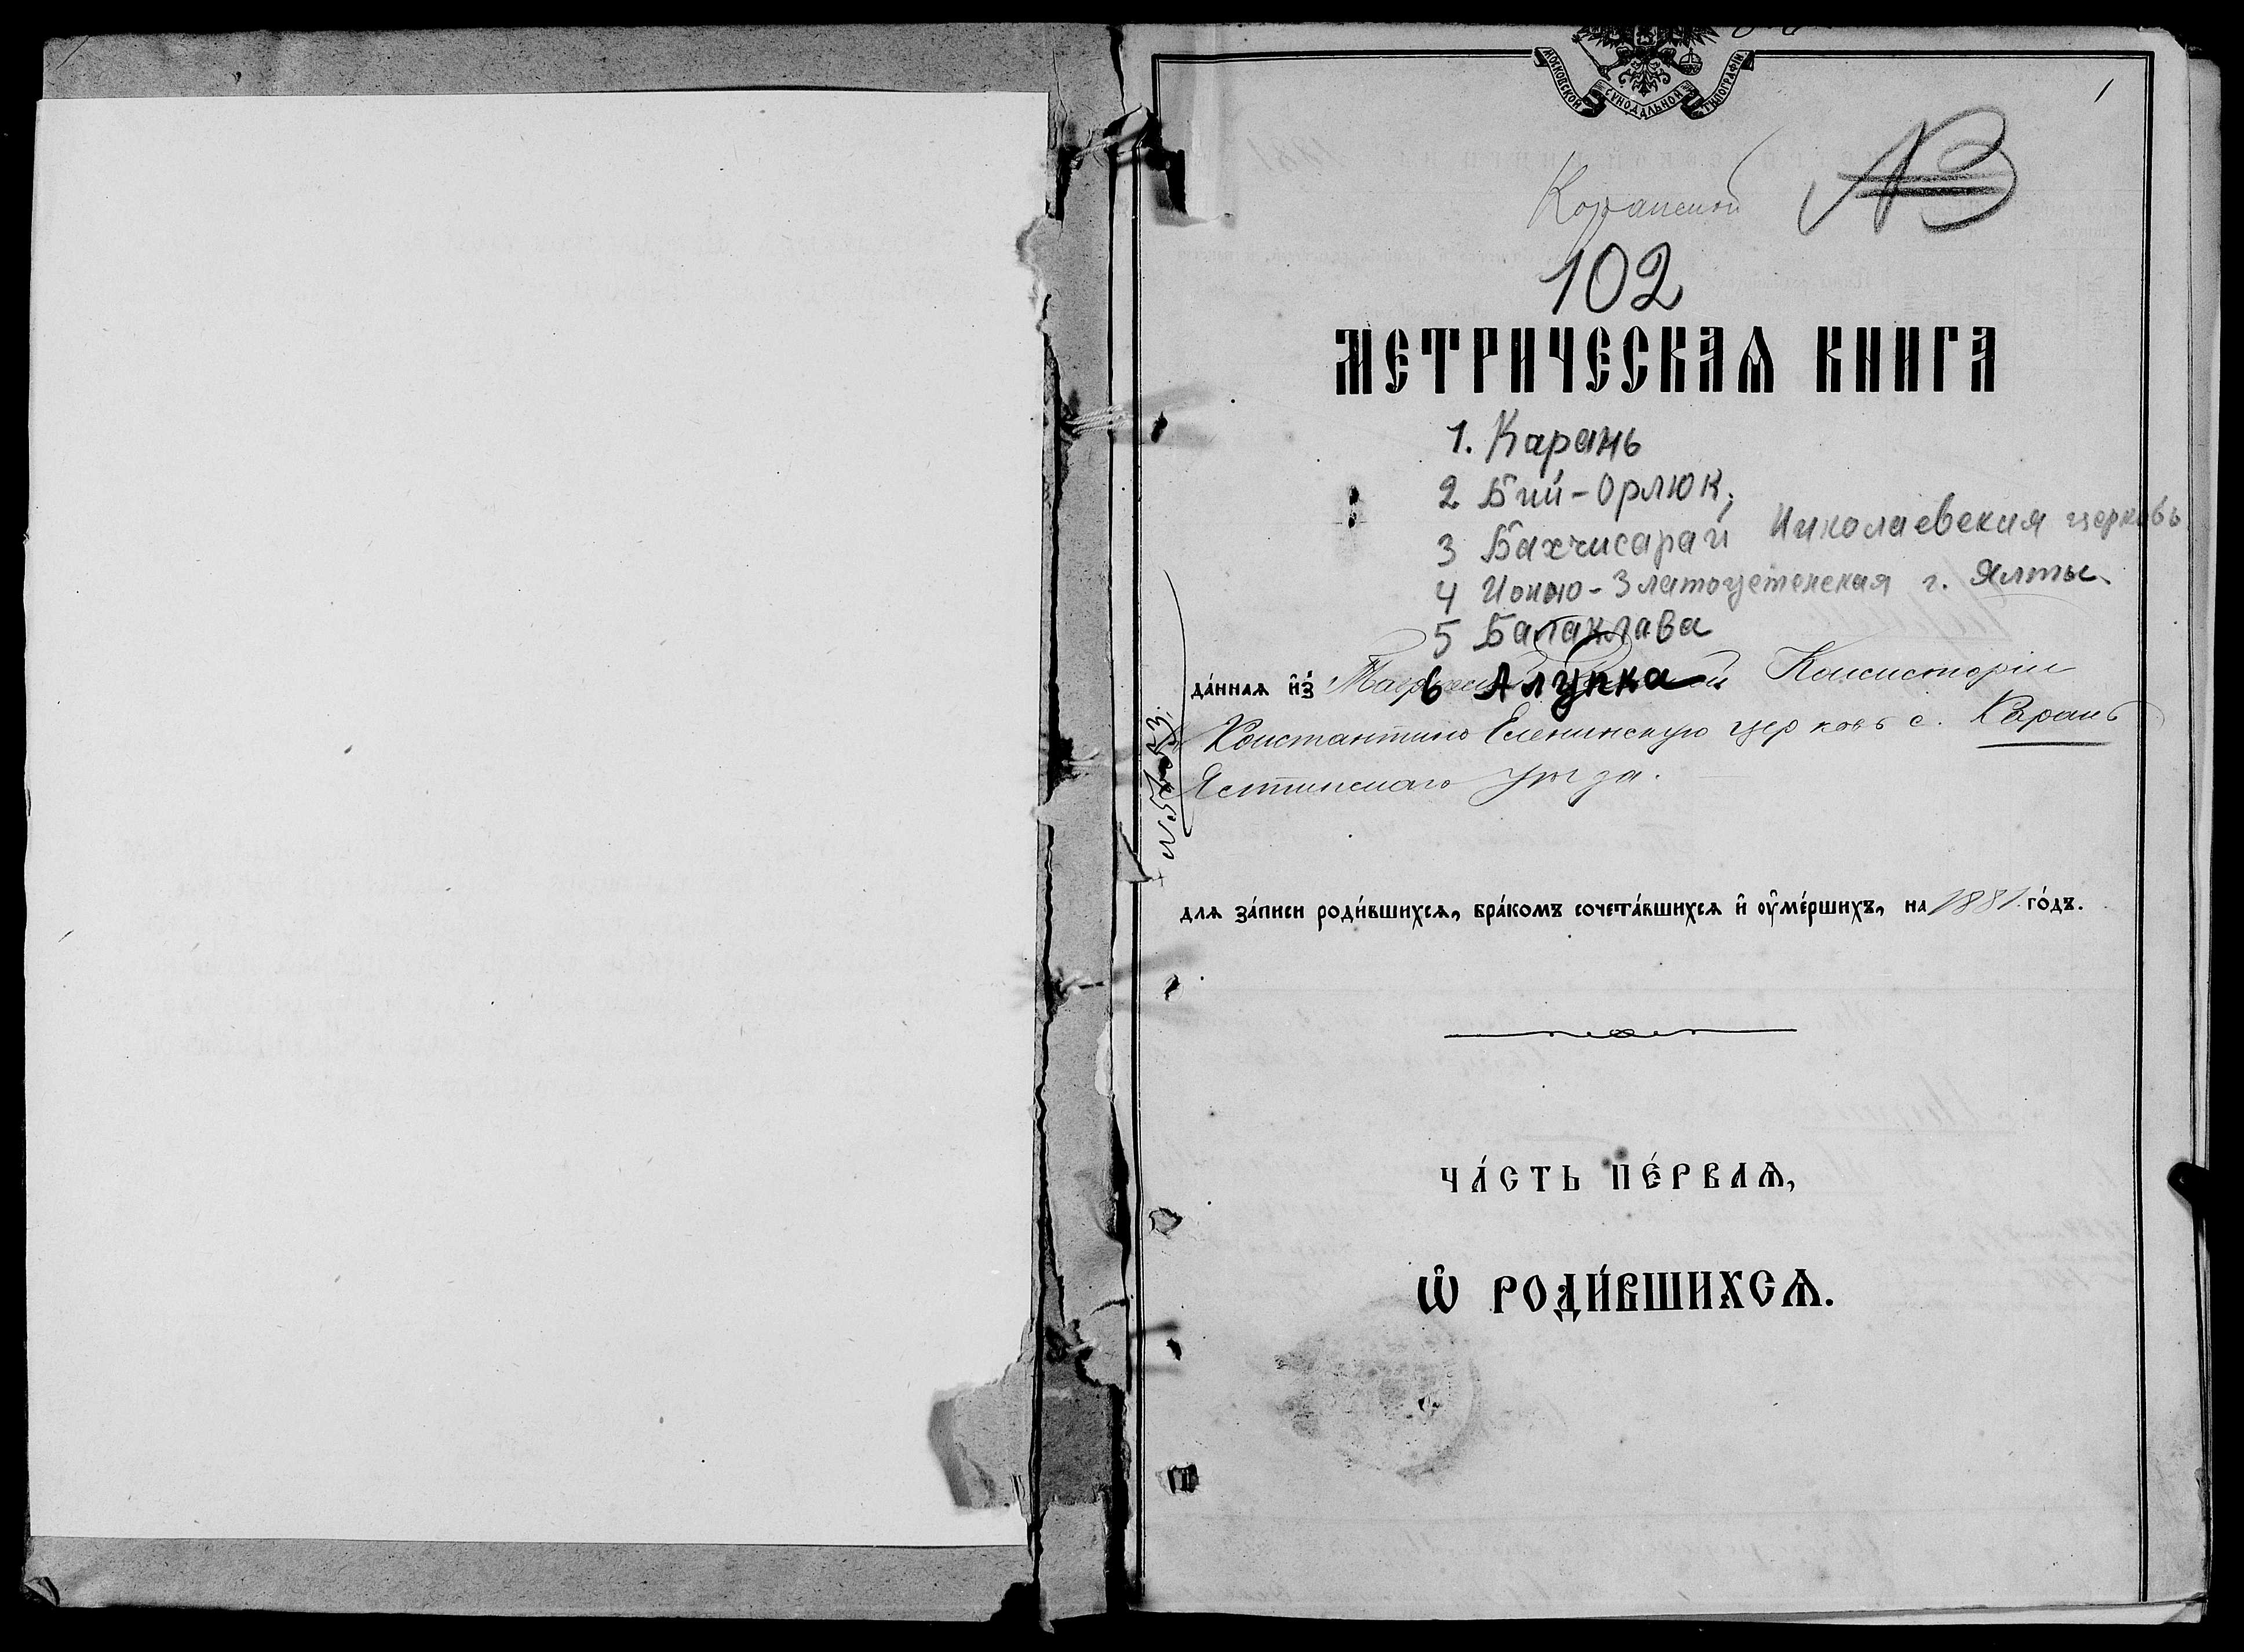 1
МОСКОВСКОЙ СѴНОДАЛЬНОЙ ТИПОГРАФІИ.
Каранской
102
МЕТРИЧЕСКАѦ КНИГА
1. Карань
2 Бий-Орлюк,
3 Бахчисарай Николаевская церковь
4 Иоано-Златоустенская г. Ялты.
5 Балаклава
6 Алупка
да́ннаѧ и҆з̾ Консисторіи
Константино Еленинскую церковь с. Карань
Ялтинскаго уѣзда.
длѧ за́писи роди́вшихсѧ, бра́комъ сочета́вшихсѧ и҆ ᲂу҆ме́ршихъ, на 1881 го́дъ.
ЧА́СТЬ ПЕ́РВАѦ,
Ѽ РОДИ́ВШИХСѦ.